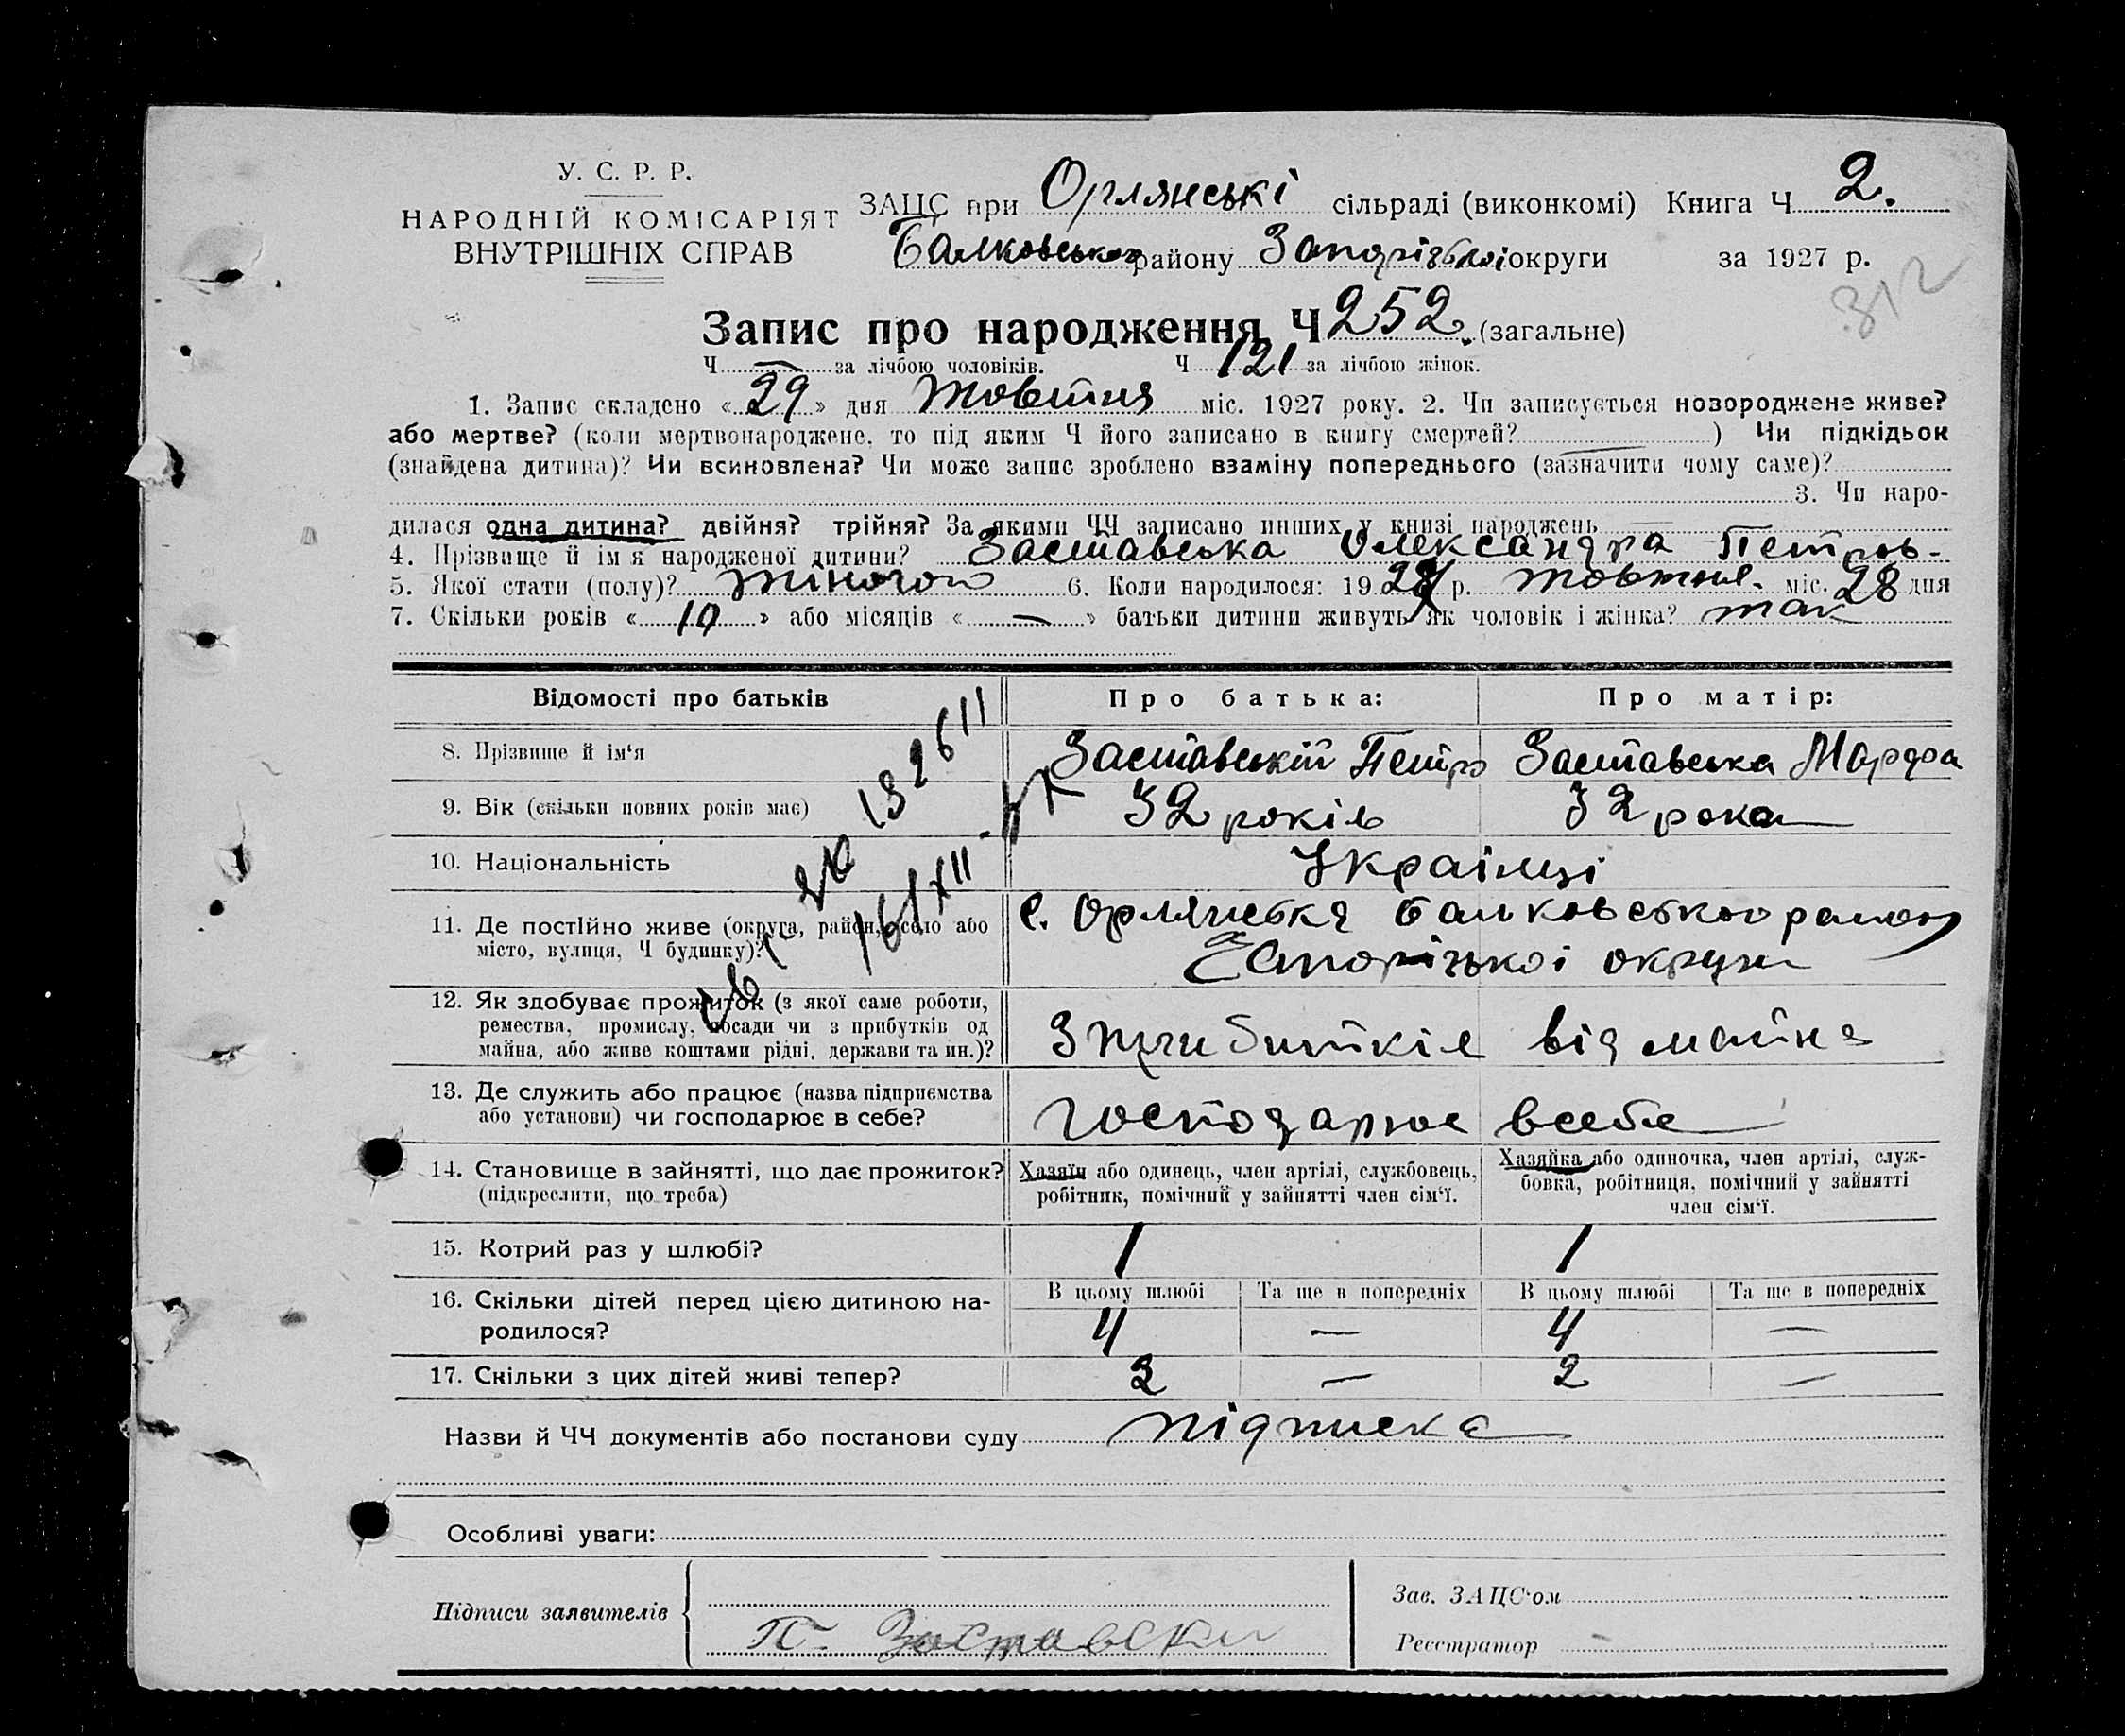 У. С. Р. Р.
НАРОДНІЙ КОМІСАРІЯТ
ВНУТРІШНІХ СПРАВ
ЗАЦС при Орлянські сільраді (виконкомі) Книга Ч 2.
Балковського району Запорізької округи за 1927 р.
312
Запис про народження Ч 252. (загальне)
Ч — за лічбою чоловіків. Ч 121 за лічбою жінок.
1. Запис складено « 29 » дня жовтня міс. 1927 року. 2. Чи записується новороджене живе?
або мертве? (коли мертвонароджене, то під яким Ч його записано в книгу смертей? — ) Чи підкідьок
(знайдена дитина)? Чи всиновлена? Чи може запис зроблено взаміну попереднього (зазначити чому саме)?
3. Чи наро-
дилася одна дитина? двійня? трійня? За якими ЧЧ записано инших у книзі народжень —
4. Прізвище й ім'я народженої дитини? Заставська Олександра Петров-
5. Якої стати (полу)? жіночою 6. Коли народилося: 19 27 р. жовтня. міс. 28 дня
7. Скільки років « 10 » або місяців « — » батьки дитини живуть як чоловік і жінка? так
Відомості про батьків Про батька: Про матір:
8. Прізвище й ім'я Заставський Петро Заставська Марфа
9. Вік (скільки повних років має) 32 років 32 рока
10. Національність Українці
11. Де постійно живе (округа, район, село або
місто, вулиця, Ч будинку)?
с. Орлянська Балковського району
Запорізької округи
12. Як здобуває прожиток (з якої саме роботи,
ремества, промислу, посади чи з прибутків од
майна, або живе коштами рідні, держави та ин.)?
З прибитків від майна
13. Де служить або працює (назва підприємства
або установи) чи господарює в себе?
господарює всебе
14. Становище в зайнятті, що дає прожиток?
(підкреслити, що треба)
Хазяїн або одинець, член артілі, службовець,
робітник, помічний у зайнятті член сім'ї.
Хазяйка або одиночка, член артілі, служ-
бовка, робітниця, помічний у зайнятті
член сім'ї.
15. Котрий раз у шлюбі? 1 1
16. Скільки дітей перед цією дитиною на-
родилося?
В цьому шлюбі Та ще в попередніх В цьому шлюбі Та ще в попередніх
4 — 4 —
17. Скільки з цих дітей живі тепер? 2 — 2 —
Назви й ЧЧ документів або постанови суду підписка
Особливі уваги:
Підписи заявителів
П. Заставски
Зав. ЗАЦС'ом
Реєстратор